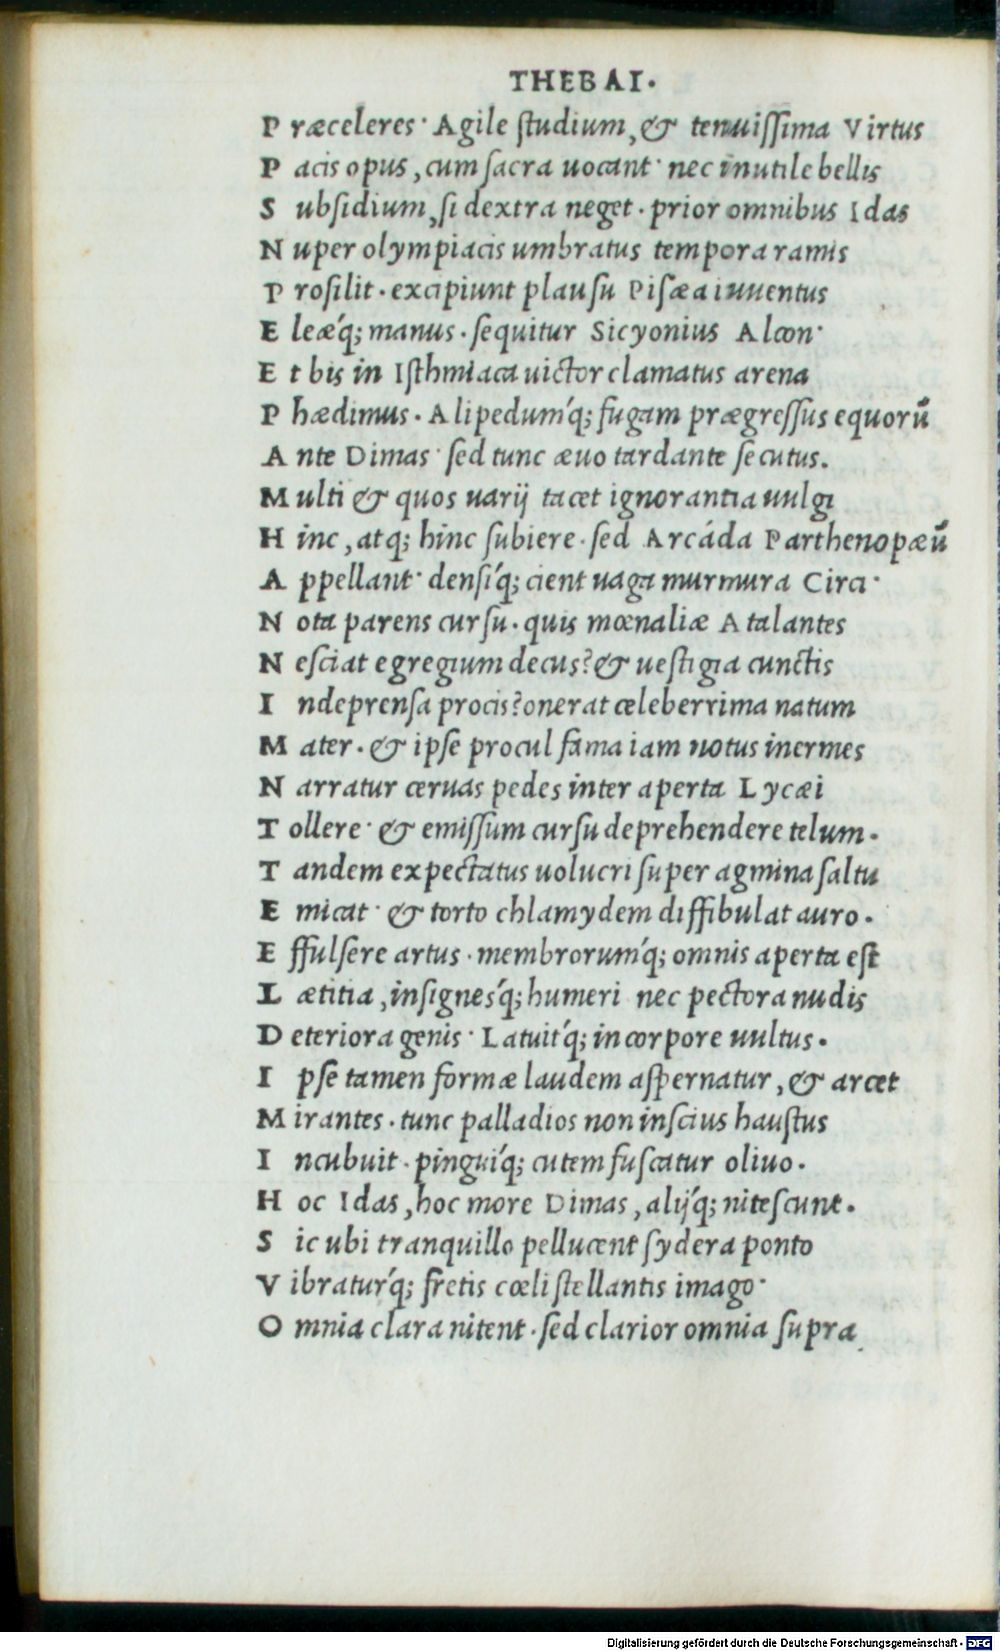 THEBAI.
P ræceleres· Agile ſtudium, & tenuiſſima Virtus
P acis opus, cum ſacra uocant· nec inutile bellis
S ubſidium, ſi dextra neget. prior omnibus Idas
N uper olympiacis umbratus tempora ramis
P roſilit. excipiunt plauſu Piſæa iuuentus
E leæq́; manus. ſequitur Sicyonius Alcon·
E t bis in Iſthmiaca uictor clamatus arena
P hædimus. Alipedumq́; fugam prægreſſus equorū
A nte Dimas· ſed tunc æuo tardante ſecutus.
M ulti & quos uarij tacet ignorantia uulgi
H inc, atq; hinc ſubiere. ſed Arcáda Parthenopæū
A ppellant· denſiq́; cient uaga murmura Circi·
N ota parens curſu. quis mœnaliæ Atalantes
N eſciat egregium decus? & ueſtigia cunctis
I ndeprenſa procis? onerat celeberrima natum
M ater. & ipſe procul fama iam notus inermes
N arratur ceruas pedes inter aperta Lycæi
T ollere· & emiſſum curſu deprehendere telum.
T andem expectatus uolucri ſuper agmina ſaltu
E micat· & torto chlamydem diffibulat auro.
E ffulſere artus. membrorumq́; omnis aperta eſt
L ætitia, inſignesq́; humeri nec pectora nudis
D eteriora genis· Latuitq́; in corpore uultus.
I pſe tamen formæ laudem aſpernatur, & arcet
M irantes. tunc palladios non inſcius hauſtus
I ncubuit. pinguiq́; cutem fuſcatur oliuo.
H oc Idas, hoc more Dimas, alijq́; niteſcunt.
S ic ubi tranquillo pellucent ſydera ponto
V ibraturq́; fretis cœli ſtellantis imago·
O mnia clara nitent. ſed clarior omnia ſupra
Digitalisierung gefördert durch die Deutsche Forschungsgemeinschaft - DFG